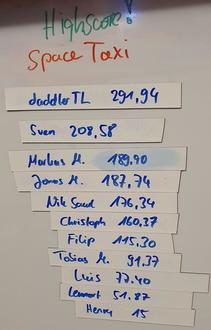 Highscore!
Space Taxi
daddlerTL 291,94
Sven 208,58
Markus M. 189,90
Jonas M. 187,74
Nik Saul 176,34
Christoph 160,37
Filip 115,30
Tobias M. 91,37
Luis 77.40
Lennart 51.87
Henry 15